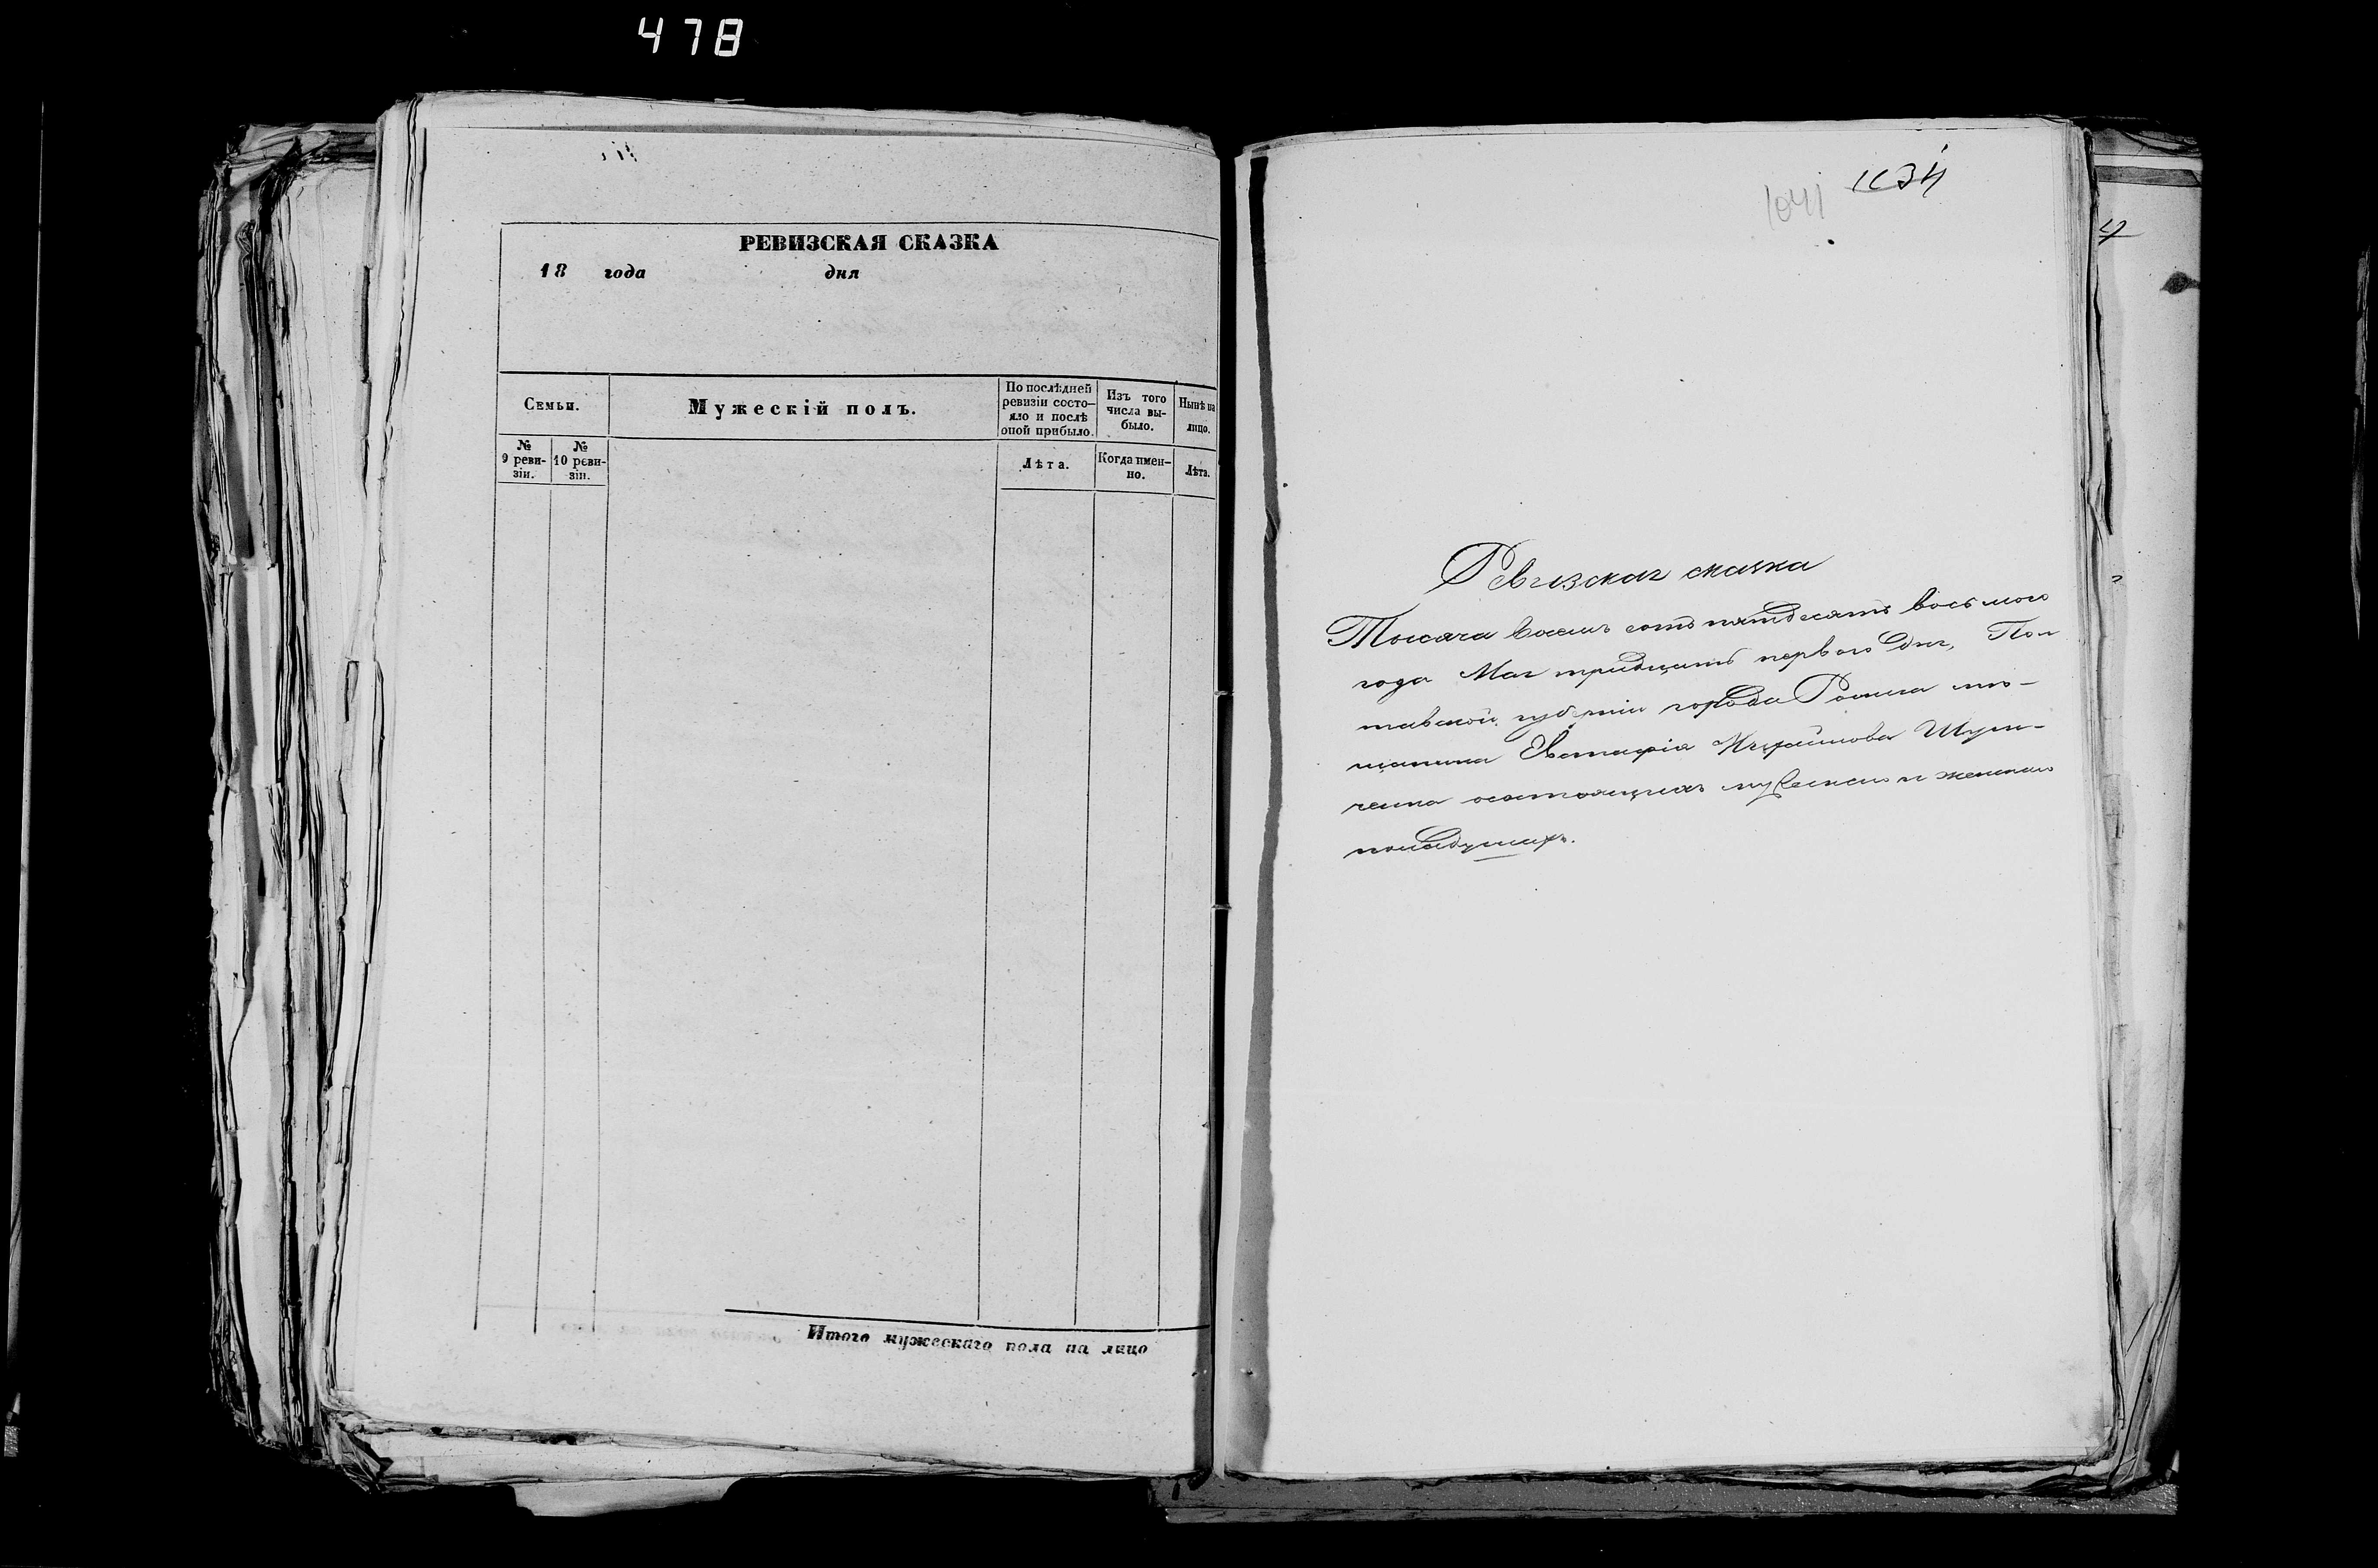 478
РЕВИЗСКАЯ СКАЗКА
18 года дня
Семьи.
Мужескій полъ.
По послѣдней ревизіи состо-
яло и послѣ
оной прибыло.
Изъ того
числа вы-
было.
Нынѣ на
лицо.
№
9 реви-
зіи.
№
10 реви-
зіи.
Лѣта.
Когда имен-
но.
Лѣта.
Итого мужескаго пола на лицо
1041 1034
Ревизская сказка
Тысяча восемь сотъ пятдесятъ восьмого
года Мая тридцать первого дня, Пол
тавской губерніи города Ромна мѣ-
щанина Евстафія
состоящихъ мужеска и женска
пола душах.